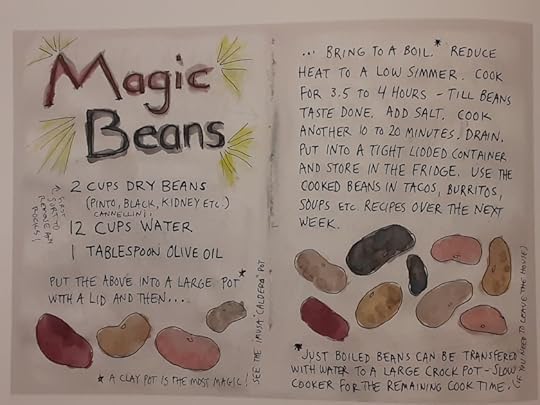 Magic
Beans
2 CUPS DRY BEANS
(PINTO, BLACK, KIDNEY ETC.)
CANNELLINI,
↑ FIRST
SORT TO
REMOVE ANY
ROCKS!
12 CUPS WATER
1 TABLESPOON OLIVE OIL
PUT THE ABOVE INTO A LARGE POT*
WITH A LID AND THEN...
* A CLAY POT IS THE MOST MAGIC!
SEE THE IMUSA "CALDERO" POT
... BRING TO A BOIL.* REDUCE
HEAT TO A LOW SIMMER. COOK
FOR 3.5 TO 4 HOURS - TILL BEANS
TASTE DONE. ADD SALT. COOK
ANOTHER 10 TO 20 MINUTES. DRAIN.
PUT INTO A TIGHT LIDDED CONTAINER
AND STORE IN THE FRIDGE. USE THE
COOKED BEANS IN TACOS, BURRITOS,
SOUPS ETC. RECIPES OVER THE NEXT
WEEK.
*JUST BOILED BEANS CAN BE TRANSFERED
WITH WATER TO A LARGE CROCK POT - SLOW
COOKER FOR THE REMAINING COOK TIME.
(IF YOU NEED TO LEAVE THE HOUSE)